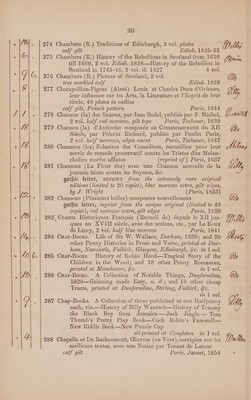 20
274 Chambers (R.) Traditions of Edinburgh, 3 vol. plates
calf gilt Edinb. 1825-33
275 Chambers (R.) History of the Rebellions in Scotland from 1638
till 1660, 2 vol. Edinb. 1828—History of the Rebellion in
Scotland in 1745-46, 2 vol. ib. 1827 4 vol.
276 Chambers (R.) Picture of Scotland, 2 vol.
tree marbled calf Edinb. 1828
277 Champollion-Figeac (Aimé) Louis et Charles Ducs d'Orleans,
leur influence sur les Arts, la Litterature et l'Esprit de leur
siècle, 48 plates in outline
calf gilt, French pattern Paris, 1844
278 Chanson (la) des Saxons, par Jean Bodel, publiée par F. Michel,
2 vol. half red morocco, gilt tops Paris, Techener, 1839
279 Chanson (la) d'Antioche composée au Commencement du XII
Siècle, par Pelerin Richard, publiée par Paulin Paris,
2 vol. half morocco, edges uncut Paris, Techener, 1847
280 Chansons (les) Folastres des Comediens, recueillies pour leur
servir de remede preservatif contre les Tristes dits Melan-
cholico morbo afflatos (reprint of) Paris, 1637
281 Chansons (La Fleur des) avec une Chanson nouvelle de la
journée faicte contre les Suysses, &c.
gothic letter, REPRINT from the extremely rare original
editions (limited to 20 copies), blue morocco extra, gilt edges,
by J. Wright (Paris, 1833)
282 Chansons (Plusieurs belles) composées nouvellement
gothic letter, reprint from the unique original (limited to 40
copies), red morocco extra, gilt edges Paris, 1838
283 Chants Historiques Français (Recueil de) depuis le XII jus-
que au XVIII siècle, avec des notices, etc., par Le Roux
de Lincy, 2 vol. half blue morocco Paris, 1841
284 CHAP-BOOKS. Life of Sir W. Wallace, Durham, 1638; and 30
other Penny Histories in Prose and Verse, printed at Dur-
ham, Newcastle, Falkirk, Glasgow, Edinburgh, &c. in 1 vol.
285 CHAP-BOOKS. History of Robin Hood—Tragical Story of the
Children in the Wood; and 18 other Penny Romances,
printed at Manchester, &c. in 1 vol.
286 CHAP-BOOKS. A Collection of Notable Things, Dunfermline,
1828—Grinning made Easy, n. d.; and 18 other cheap
Tracts, printed at Dunfermline, Stirling, Falkirk, &c.
in 1 vol.
287 CHAP-BOOKS. A Collection of those published at one Halfpenny
each, viz.—History of Billy Wantwit—History of Tommy
the Black Boy from Jamaica—Jack Jingle — Tom
Thumb's Pretty Play Book—Cock Robin's Farewell—
New Riddle Book—New Puzzle Cap
all printed at Congleton in 1 vol.
288 Chapelle et De Bachaumont, Œuvres (en Vers), corrigées sur les
meilleurs textes, avec une Notice par Tenant de Latour
calf gilt Paris, Jannet, 1854